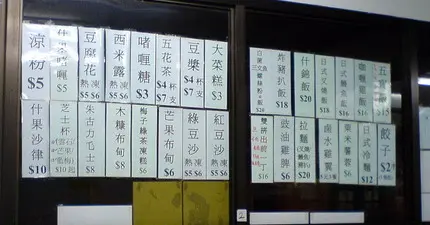 涼粉 $5
豆腐花 熱凍 $5 $6
西米露 熱凍 $5 $6
啫喱糖 $3
五花茶 $4 $7 杯支
豆漿 $4 $7 杯支
大菜糕 $3
什果沙律 $10
芝士杯
朱古力毛士 $8
木糠布甸 $8
梅子綠茶凍糕 $6
芒果布甸 $6
綠豆沙 熱凍 $5 $6
紅豆沙 熱凍 $5 $6
炸豬扒飯 $18
什錦飯 $20
咖喱雞飯 $18
雙拼出前一丁 $16
豉油雞脾 $6
拉麵 $20
鹵水雞翼
粟米薯蓉 $6
日式冷麵 $12
餃子 $2
2